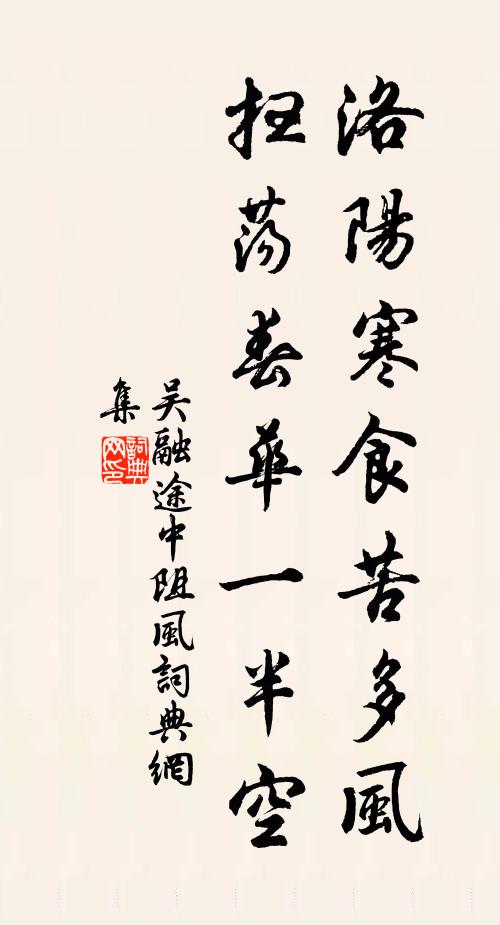 洛陽寒食苦多風
扫荡春華一半空
吴融途中阻風詞典網
集
詞典網印